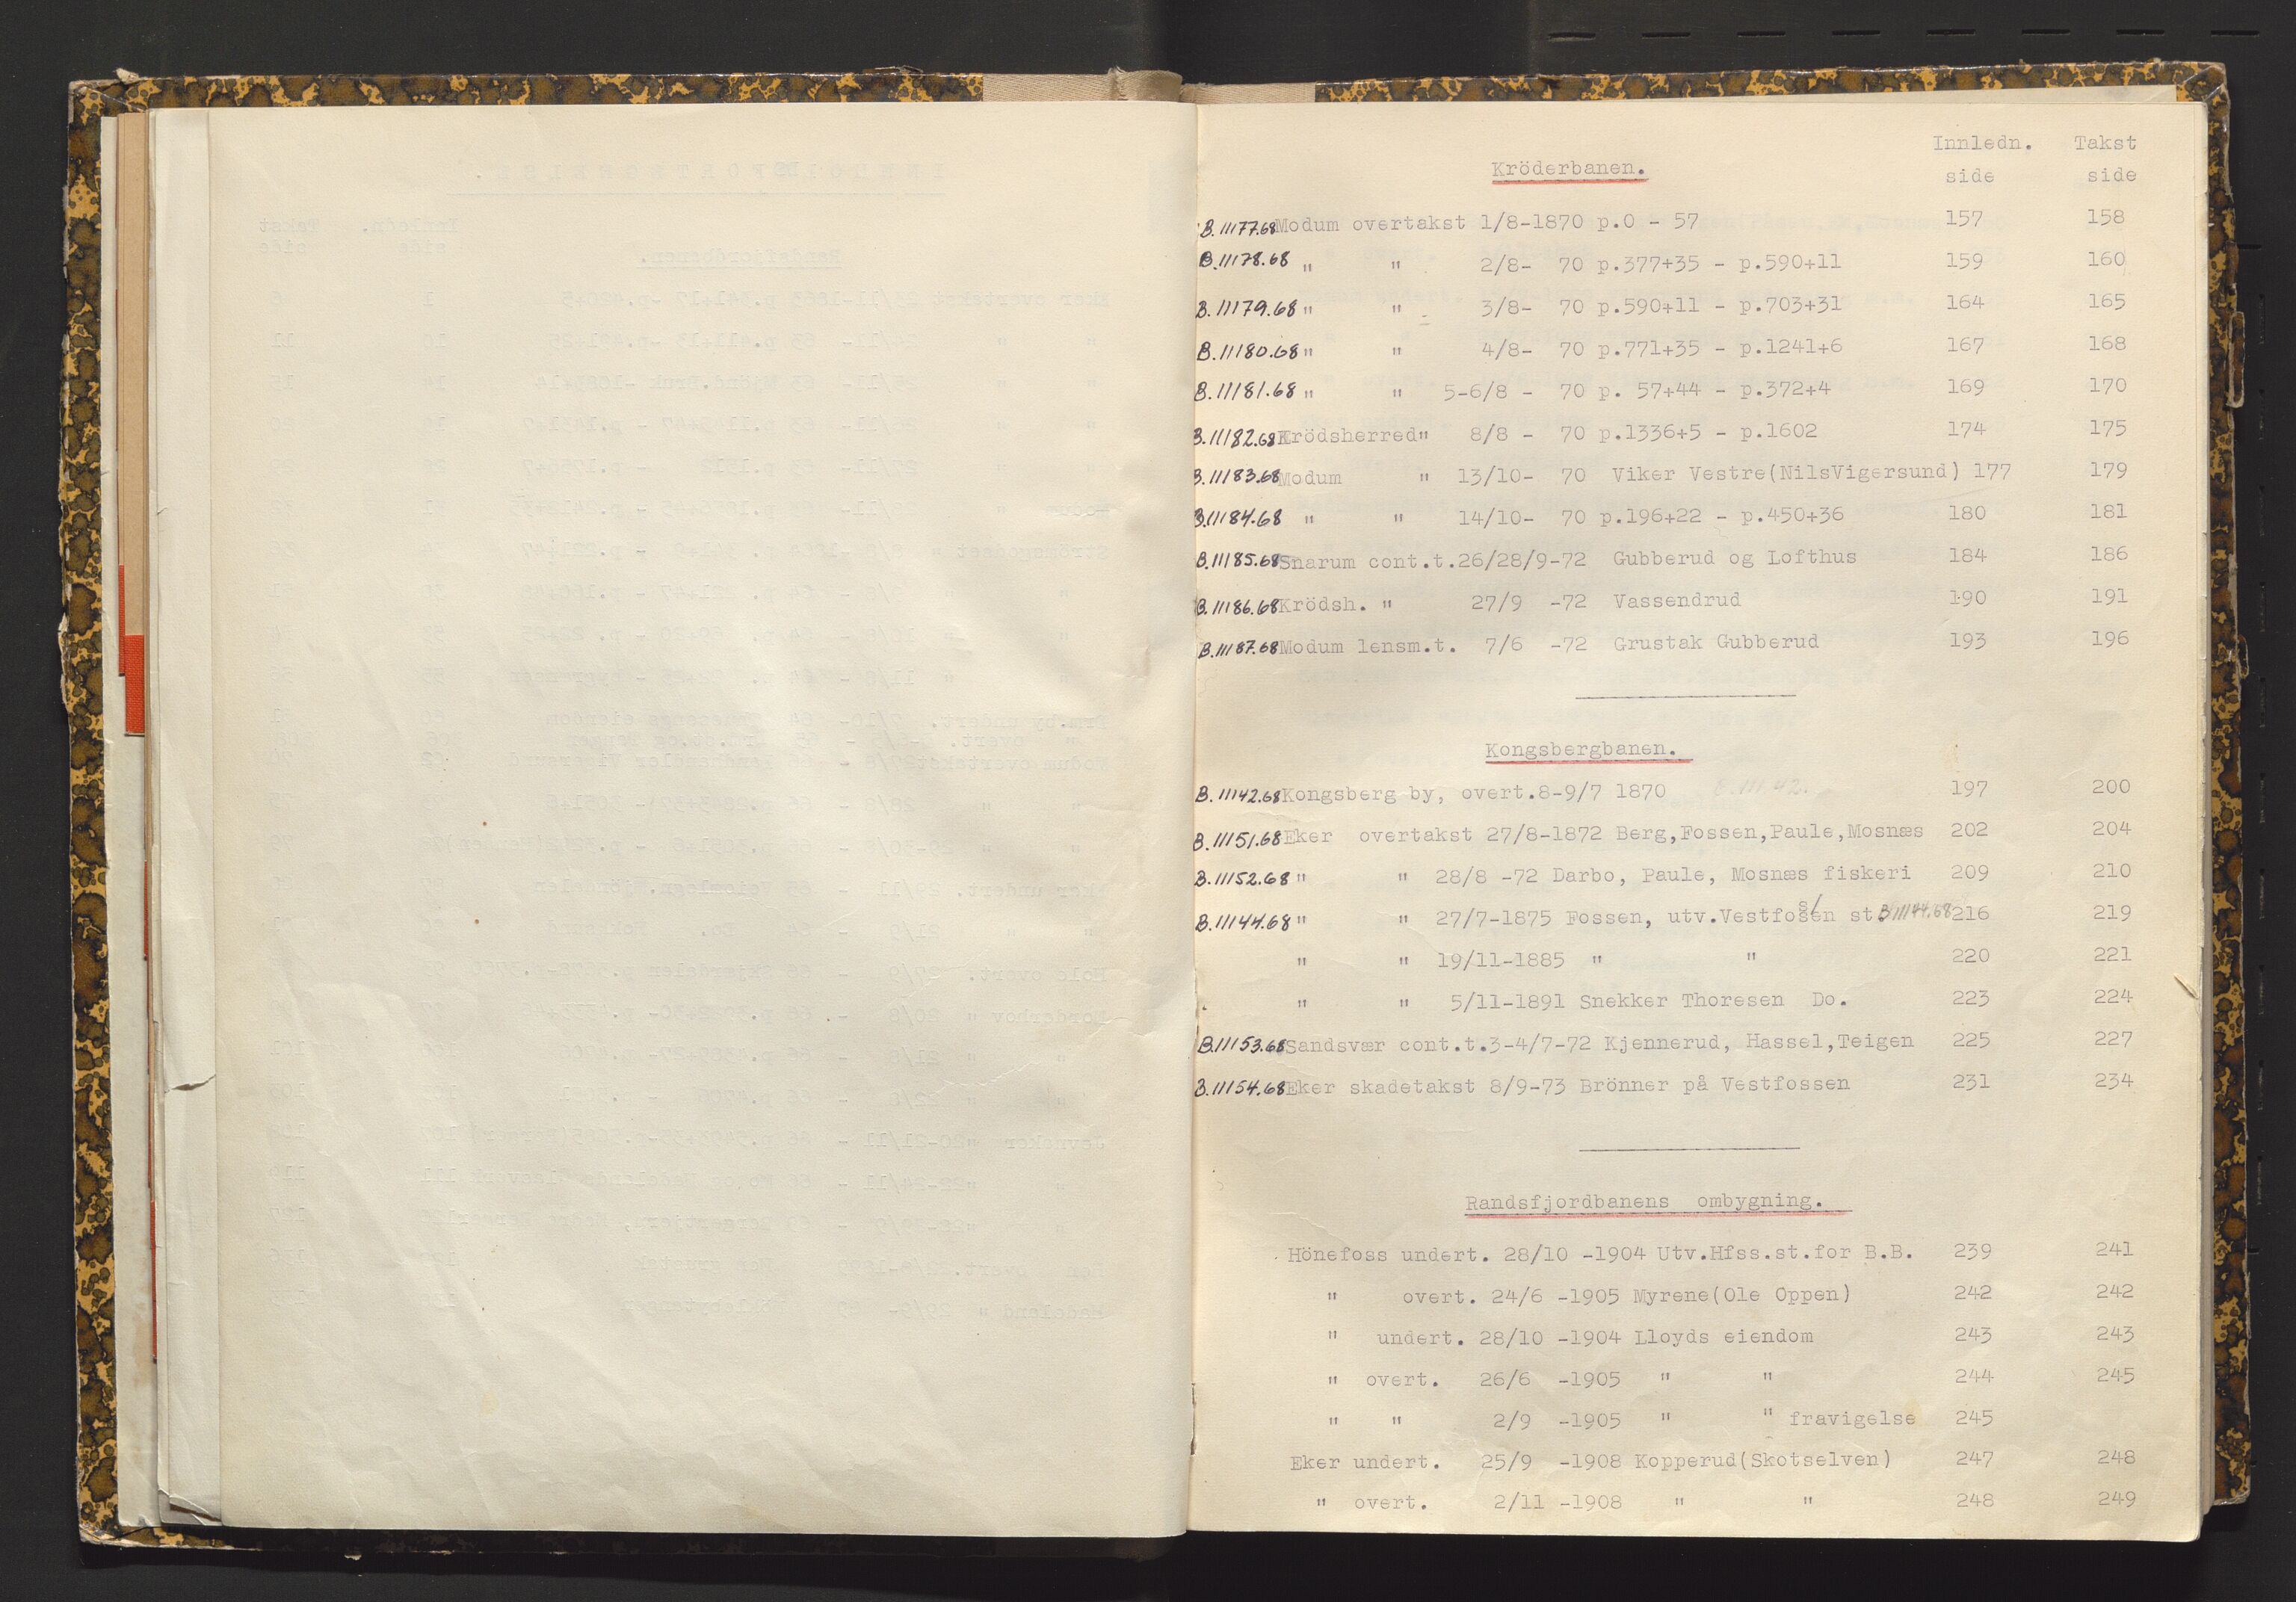 Innledn. Takst
Kröderbanen. side side
B.11177.68 Modum overtakst 1/8-1870 p.0 - 57 157 158
B.11178.68 " " 2/8- 70 p.377+35 - p.590+11 159 160
B.11179.68 " " 3/8- 70 p.590+11 - p.703+31 164 165
B.11180.68 " " 4/8- 70 p.771+35 - p.1241+6 167 168
B.11181.68 " " 5-6/8 - 70 p. 57+44 - p.372+4 169 170
B.11182.68 Krödsherred " 8/8 - 70 p.1336+5 - p.1602 174 175
B.11183.68 Modum " 13/10- 70 Viker Vestre(NilsVigersund) 177 179
B.11184.68 " " 14/10- 70 p.196+22 - p.450+36 180 181
B.11185.68 Snarum cont.t.26/28/9-72 Gubberud og Lofthus 184 186
B.11186.68 Krödsh. " 27/9 -72 Vassendrud 190 191
B.11187.68 Modum lensm.t. 7/6 -72 Grustak Gubberud 193 196
Kongsbergbanen.
B.11142.68 Kongsberg by, overt.8-9/7 1870 B.11142. 197 200
B.11151.68 Eker overtakst 27/8-1872 Berg,Fossen,Paule,Mosnæs 202 204
B.11152.68 " " 28/8 -72 Darbo, Paule, Mosnæs fiskeri 209 210
B.11144.68 " " 27/7-1875 Fossen, utv.Vestfossen st. B11144.68 216 219
" " 19/11-1885 " " 220 221
" " 5/11-1891 Snekker Thoresen Do. 223 224
B.11153.68 Sandsvær cont.t.3-4/7-72 Kjennerud, Hassel,Teigen 225 227
B.11154.68 Eker skadetakst 8/9-73 Brönner på Vestfossen 231 234
Randsfjordbanens ombygning.
Hönefoss undert. 28/10 -1904 Utv.Hfss.st.for B.B. 239 241
" overt. 24/6 -1905 Myrene(Ole Oppen) 242 242
" undert. 28/10 -1904 Lloyds eiendom 243 243
" overt. 26/6 -1905 " " 244 245
" " 2/9 -1905 " " fravigelse 245
Eker undert. 25/9 -1908 Kopperud(Skotselven) 247 248
" overt. 2/11 -1908 " " 248 249